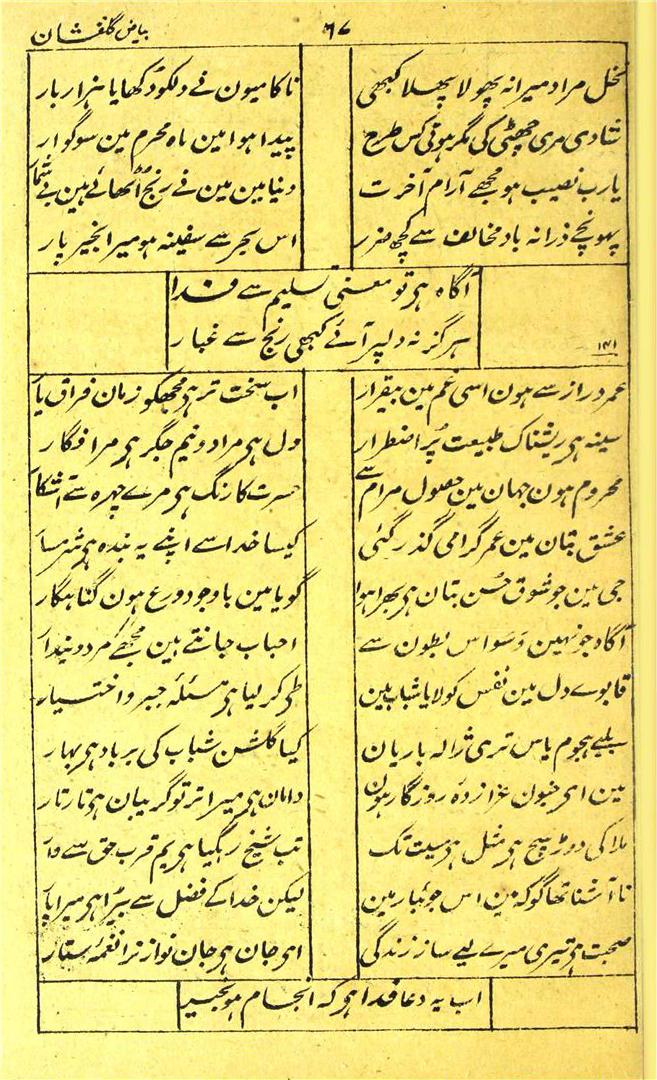 ۶۷
بیاض گلفشان
نخل مراد میرا نہ پھولا پھلا کبھی
ناکامیون نے دلکو دکھایا ہزار بار
شادی مری چھٹی کی مگر ہوتی کس طرح
پیدا ہوا مین ماہ محرم مین سوگوار
یارب نصیب ہو مجھے آرام آخرت
دنیا مین مین نے رنج اٹھائے ہین بے شمار
پہونچے ذرا نہ باد مخالف سے کچھ ضرر
اس بحر سے سفینہ ہو میرا بخیر پار
آگاہ ہر تو معنی تسلیم سے فدا
ہرگز نہ دلپر آئے کبھی رنج سے غبار
۱۴۱
عمر دراز سے ہون اسی غم مین بیقرار
اب سخت تر ہر مجھکو زمان فراق یار
سینہ ہر ریشناک طبیعت پر اضطرار
دل ہر مرا دونیم جگر ہر مرا فگار
محروم ہون جہان مین حصول مرام سے
حسرت کا رنگ ہر مرے چہرہ سے آشکار
عشق بتان مین عمر گرامی گذر گئی
کیسا خدا سے اپنے یہ بندہ ہر شرمسار
جی مین جو شوق حسن بتان ہر بھرا ہوا
گویا مین باوجود ورع ہون گناہگار
آگاہ جو نہین وسواس بطون سے
احباب جانتے ہین مجھے مرد دیندار
قابوے دل مین نفس کو لایا شباب مین
طی کر لیا ہر مسئلہ جبر و اختیار
ہجوم یاس تری ژالہ باریان
کیا گلشن شباب کی برباد ہر بہار
مین اہر جنون عزازدہ روزگار ہون
دامان ہر میرا تر تو گریبان ہر تار تار
ملا کی دوڑ سچ ہر مثل ہر مسیت تک
تب شیخ رہگیا ہر یم قرب حق سے وار
ناآشنا تھا گو کہ مین اس جوئبار مین
لیکن خدا کے فضل سے بیڑا ہر میرا پار
صحبت ہر تیری میرے لیے ساز زندگی
اہر جان ہر جان نواز ترا نغمہ ستار
اب یہ دعا فدا ہر کہ انجام ہو بخیر